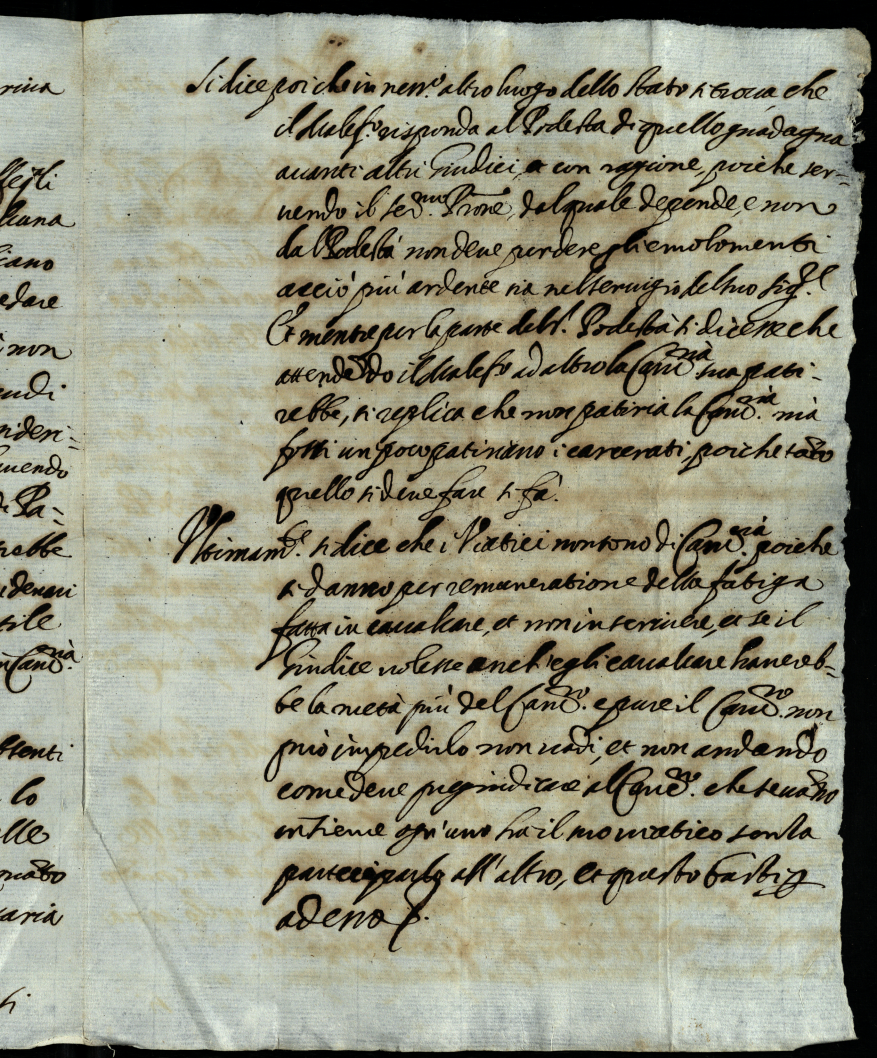 rina
non
lo
aria
Si dice poi che in ness.o altro luogo dello Stato si troua che
il Malef.o risponda al Podestà di quello guadagna
auanti altri Giudici, et con ragione, poiche ser-
uendo il Ser.mo Prone, dal quale depende, e non
dal Podestà non deue perdere gli emolomenti
acciò più ardente sia nel seruigio del suo Sig.e
Et mentre per la parte del S.r Podestà si dicesse che
attendendo il Malef.o ad altro la Canc.ria sua pati-
rebbe, si replica che non patiria la Canc.ria mà
forsi un poco patiriano i carcerati, poiche tãto
quello si deue fare si fà.
Vltimam.te si dice che i Viatici non sono di Canc.ria poiche
si danno per remuneratione della fatiga
fatta in caualcare, et non in scriuere, et se il
Giudice volesse anch'egli caualcare hauereb-
be la metà più del Canc.ro e pure il Canc.ro non
può impedirlo non uadi, et non andando
come deue pregiudicare al Canc.ro che se uãno
insieme ogn'uno ha il suo uiatico senza
participarlo all'altro, et questo basti p
adesso